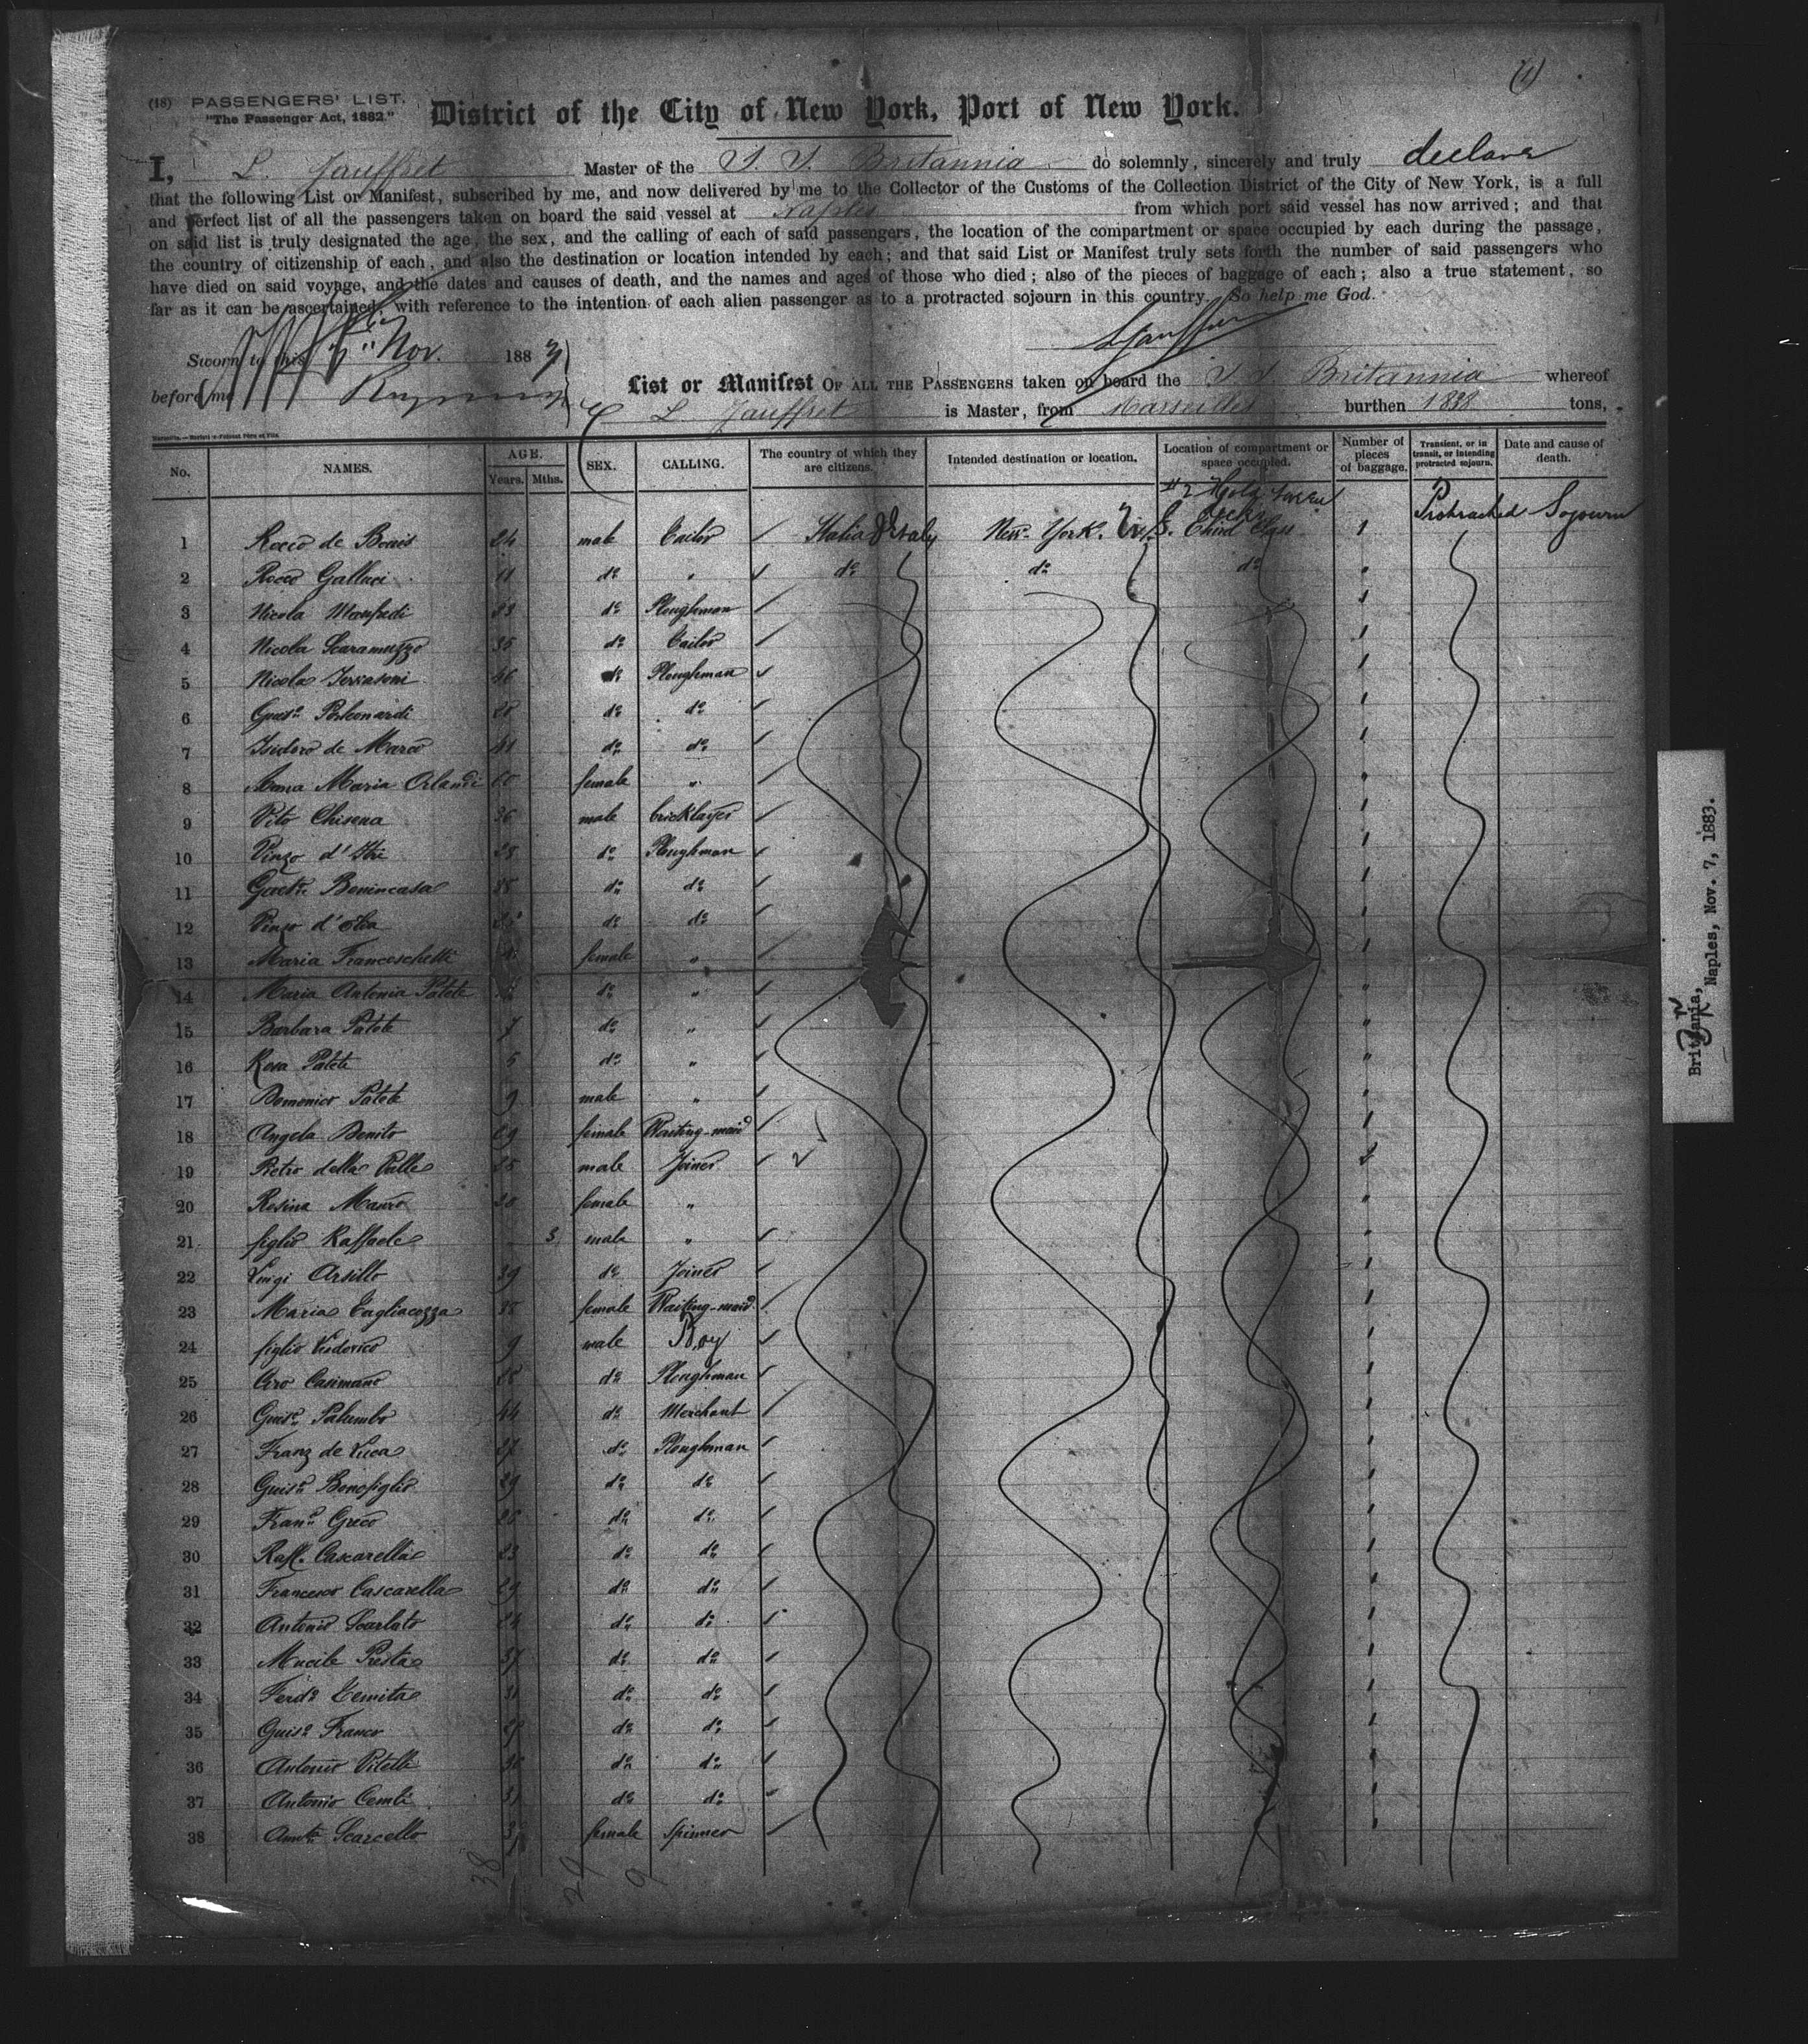 (1)
(18) PASSENGERS' LIST.
"The Passenger Act, 1882."
District of the City of New York, Port of New York.
I, L. Jauffret Master of the S. S. Britannia do solemnly, sincerely and truly declare
that the following List or Manifest, subscribed by me, and now delivered by me to the Collector of the Customs of the Collection District of the City of New York, is a full
and perfect list of all the passengers taken on board the said vessel at Naples from which port said vessel has now arrived; and that
on said list is truly designated the age, the sex, and the calling of each of said passengers, the location of the compartment or space occupied by each during the passage,
the country of citizenship of each, and also the destination or location intended by each; and that said List or Manifest truly sets forth the number of said passengers who
have died on said voyage, and the dates and causes of death, and the names and ages of those who died; also of the pieces of baggage of each; also a true statement, so
far as it can be ascertained, with reference to the intention of each alien passenger as to a protracted sojourn in this country. So help me God.
L Jauffret
Sworn to this 7" Nov. 1883
before me
List or Manifest OF ALL THE PASSENGERS taken on board the S. S. Britannia whereof
L. Jauffret is Master, from Marseilles burthen 1838 tons,
No. NAMES. AGE. Years. Mths. SEX. CALLING. The country of which they are citizens. Intended destination or location. Location of compartment or space occupied. Number of pieces of baggage. Transient, or in transit, or intending protracted sojourn. Date and cause of death.
1 Rocco de Bonis 24 male Tailor Italia Italy New-York. U.S. Third Class 1 Protracted Sojourn
2 Rocco Galluci 11 do " do do do "
3 Nicola Manfredi 33 do Ploughman 1
4 Nicola Scaramuzzo 35 do Tailor 1
5 Nicola 46 do Ploughman 1
6 Guise 28 do do 1
7 Isidoro de Marco 41 do do 1
8 Anna Maria Orlandi 60 female " "
9 Vito Chisena 36 male bricklayer 1
10 Vinzo 28 do Ploughman 1
11 Gaetn Bonincasa do do 1
12 Vinzo d'Elia do do 1
13 Maria Franceschetti female " 1
14 Maria Antonia Patete do " "
15 Barbara Patete 7 do " "
16 Rosa Patete 5 do " "
17 Domenico Patete 9 male " "
18 Angela Benito 29 female Waiting-maid 1
19 Pietro della Valle 35 male Joiner 2
20 Rosina Mauro 28 female " "
21 figlio Raffaele 3 male " "
22 Luigi Arsillo 39 do Joiner 1
23 Maria Tagliacozza 38 female Waiting-maid 1
24 figlio Luderico 9 male Boy 1
25 Ciro Casimano 28 do Ploughman 1
26 Guise Palumbo 44 do Merchant 1
27 Franz de Luca 37 do Ploughman 1
28 Guise Bonofiglio 29 do do 1
29 Franco Greco 26 do do 1
30 Raffl. Cascarella 23 do do 1
31 Francesco Cascarella 29 do do 1
32 Antonio Scarlato 24 do do 1
33 Presta 37 do do 1
34 Ferdo 31 do do 1
35 Guise Franco do do 1
36 Antonio Vitelli 36 do do 1
37 Antonio 31 do do 1
38 Scarcello female Spinner 1
38 29 9
Britannia,
Naples, Nov. 7, 1883.